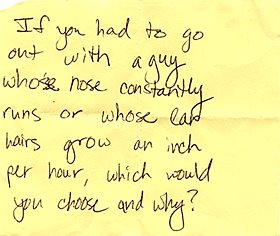 If you had to go
out with a guy
whose nose constantly
runs or whose ear
hairs grow an inch
per hour, which would
you choose and why?